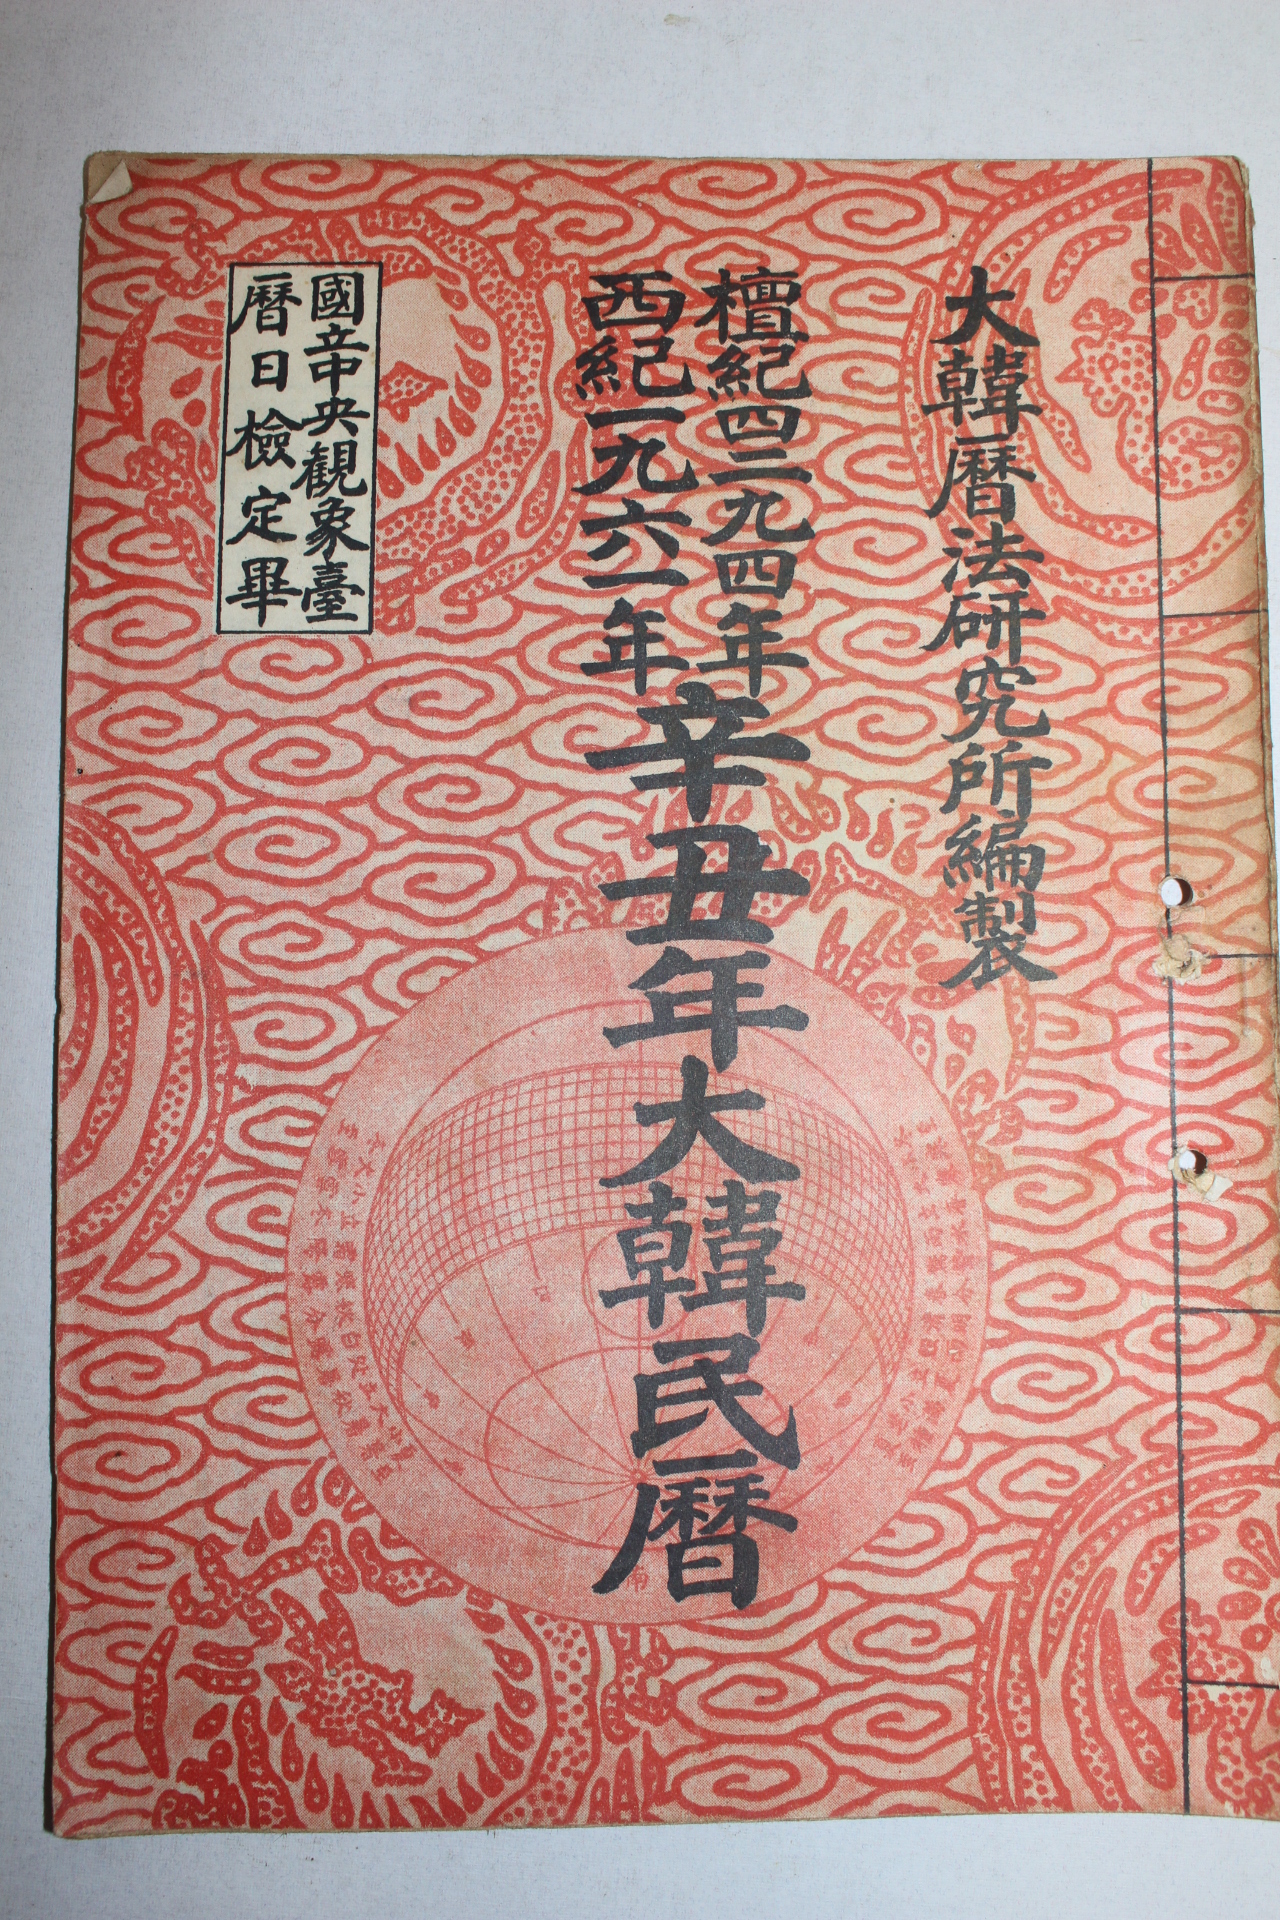 大韓曆法研究所編製
檀紀四二九四年
西紀一九六一年
辛丑年大韓民曆
國立中央觀象臺
曆日檢定畢